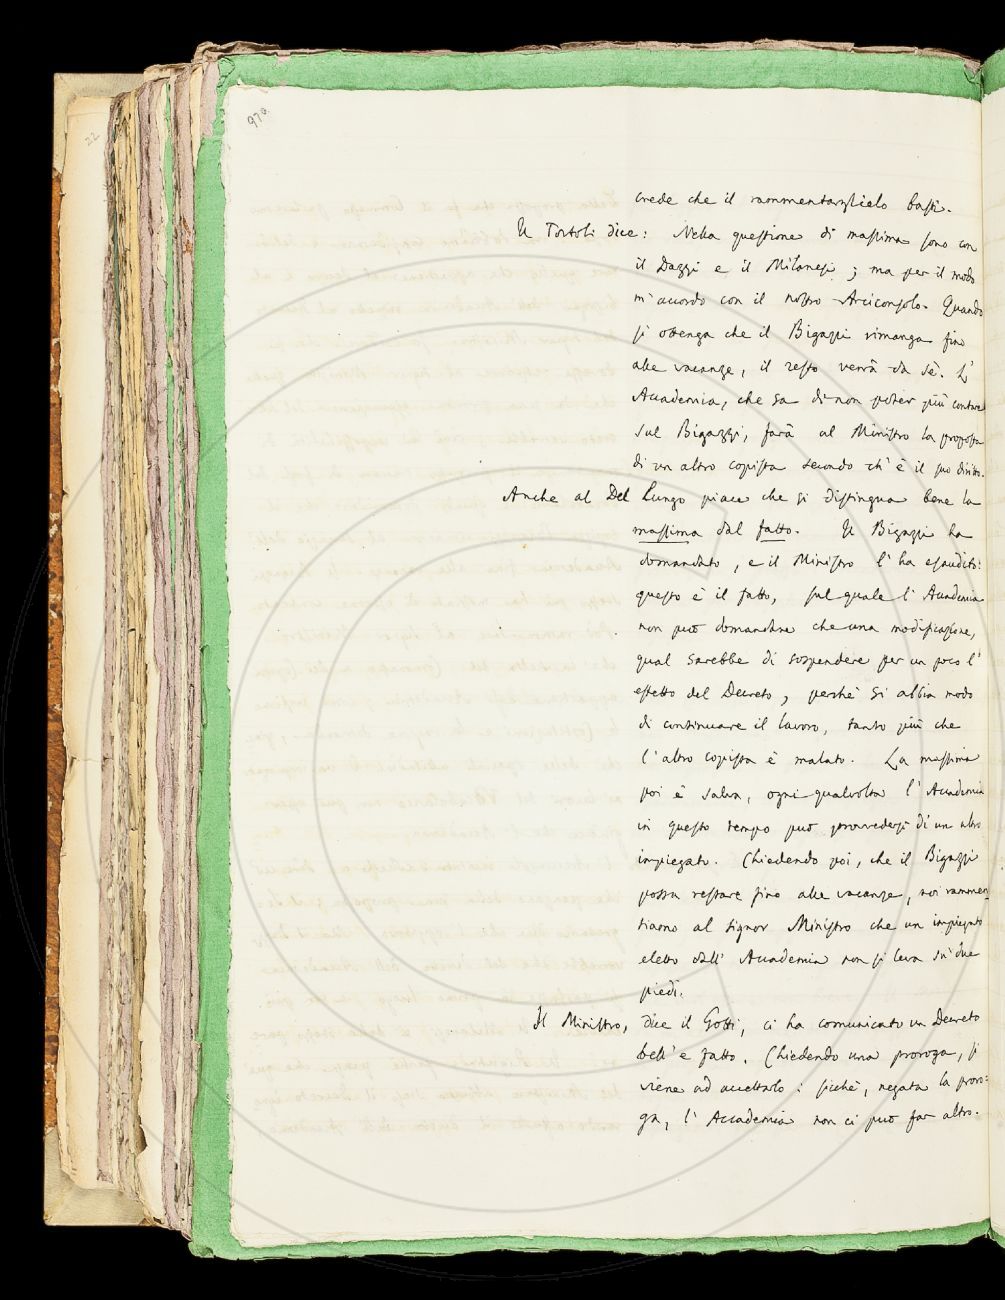 22
970.
crede che il rammentarglielo basti.
Il Tortoli dice: Nella questione di massima sono con
il Dazzi e il Milanesi; ma per il modo
m'accordo con il nostro Arciconsolo. Quando
si ottenga che il Bigazzi rimanga fino
alle vacanze, il resto verrà da sè. L'
Accademia, che sa di non poter più contare
sul Bigazzi, farà al Ministro la proposta
di un altro copista secondo ch'è il suo diritto.
Anche al Del Lungo piace che si distingua bene la
massima dal fatto. Il Bigazzi ha
domandato, e il Ministro l'ha esaudito:
questo è il fatto, sul quale l'Accademia
non può domandare che una modificazione,
qual sarebbe di sospendere per un poco l'
effetto del Decreto, perchè si abbia modo
di continuare il lavoro, tanto più che
l'altro copista è malato. La massima
poi è salva, ogni qualvolta l'Accademia
in questo tempo può provvedersi di un altro
impiegato. Chiedendo poi, che il Bigazzi
possa restare fino alle vacanze, noi rammen-
tiamo al signor Ministro che un impiegato
eletto dall'Accademia non si leva su' due
piedi.
Il Ministro, dice il Gotti, ci ha comunicato un Decreto
bell'e fatto. Chiedendo una proroga, si
viene ad accettarlo: sicchè, negata la proro-
ga, l'Accademia non ci può far altro.